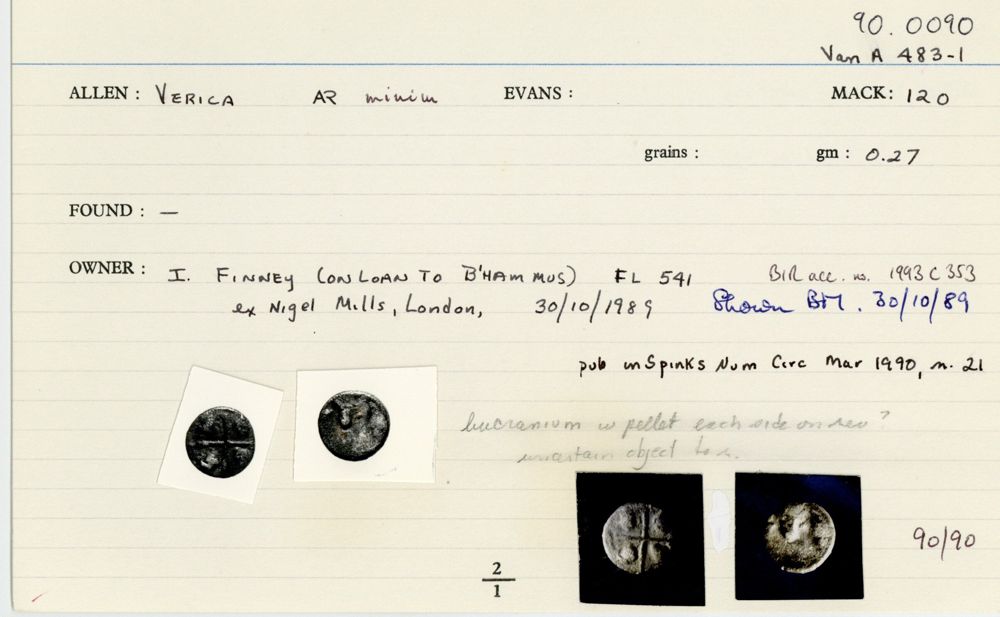 90.0090
Van A 483-1
ALLEN : VERICA AR minim EVANS : MACK: 120
grains : gm : 0.27
FOUND : —
OWNER : I. FINNEY (ON LOAN TO B'HAM MUS) FL 541 BIR acc. no. 1993 C 353
ex Nigel Mills, London, 30/10/1989 Shown BM. 30/10/89
pub in Spinks Num Circ Mar 1990, n. 21
bucranium w pellet each side on rev?
uncertain object to r.
90/90
2
1